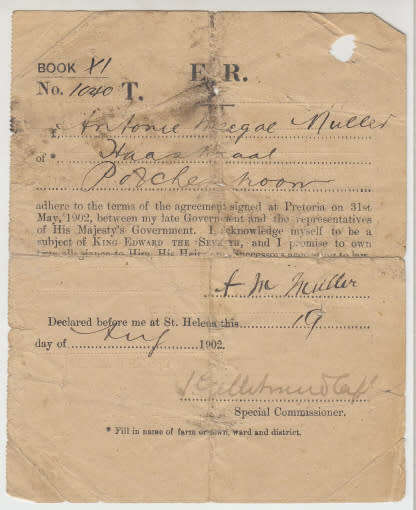 BOOK XI
No. 1040 T. E. R.
I, Antonie Muller
of *
adhere to the terms of the agreement signed at Pretoria on 31st
May, 1902, between my late Government and the representatives
of His Majesty's Government. I acknowledge myself to be a
subject of KING EDWARD THE SEVENTH, and I promise to own
true allegiance to Him, His Heirs and Successors according to law.
A M Muller
Declared before me at St. Helena this 19
day of Aug 1902.
Special Commissioner.
* Fill in name of farm or town, ward and district.